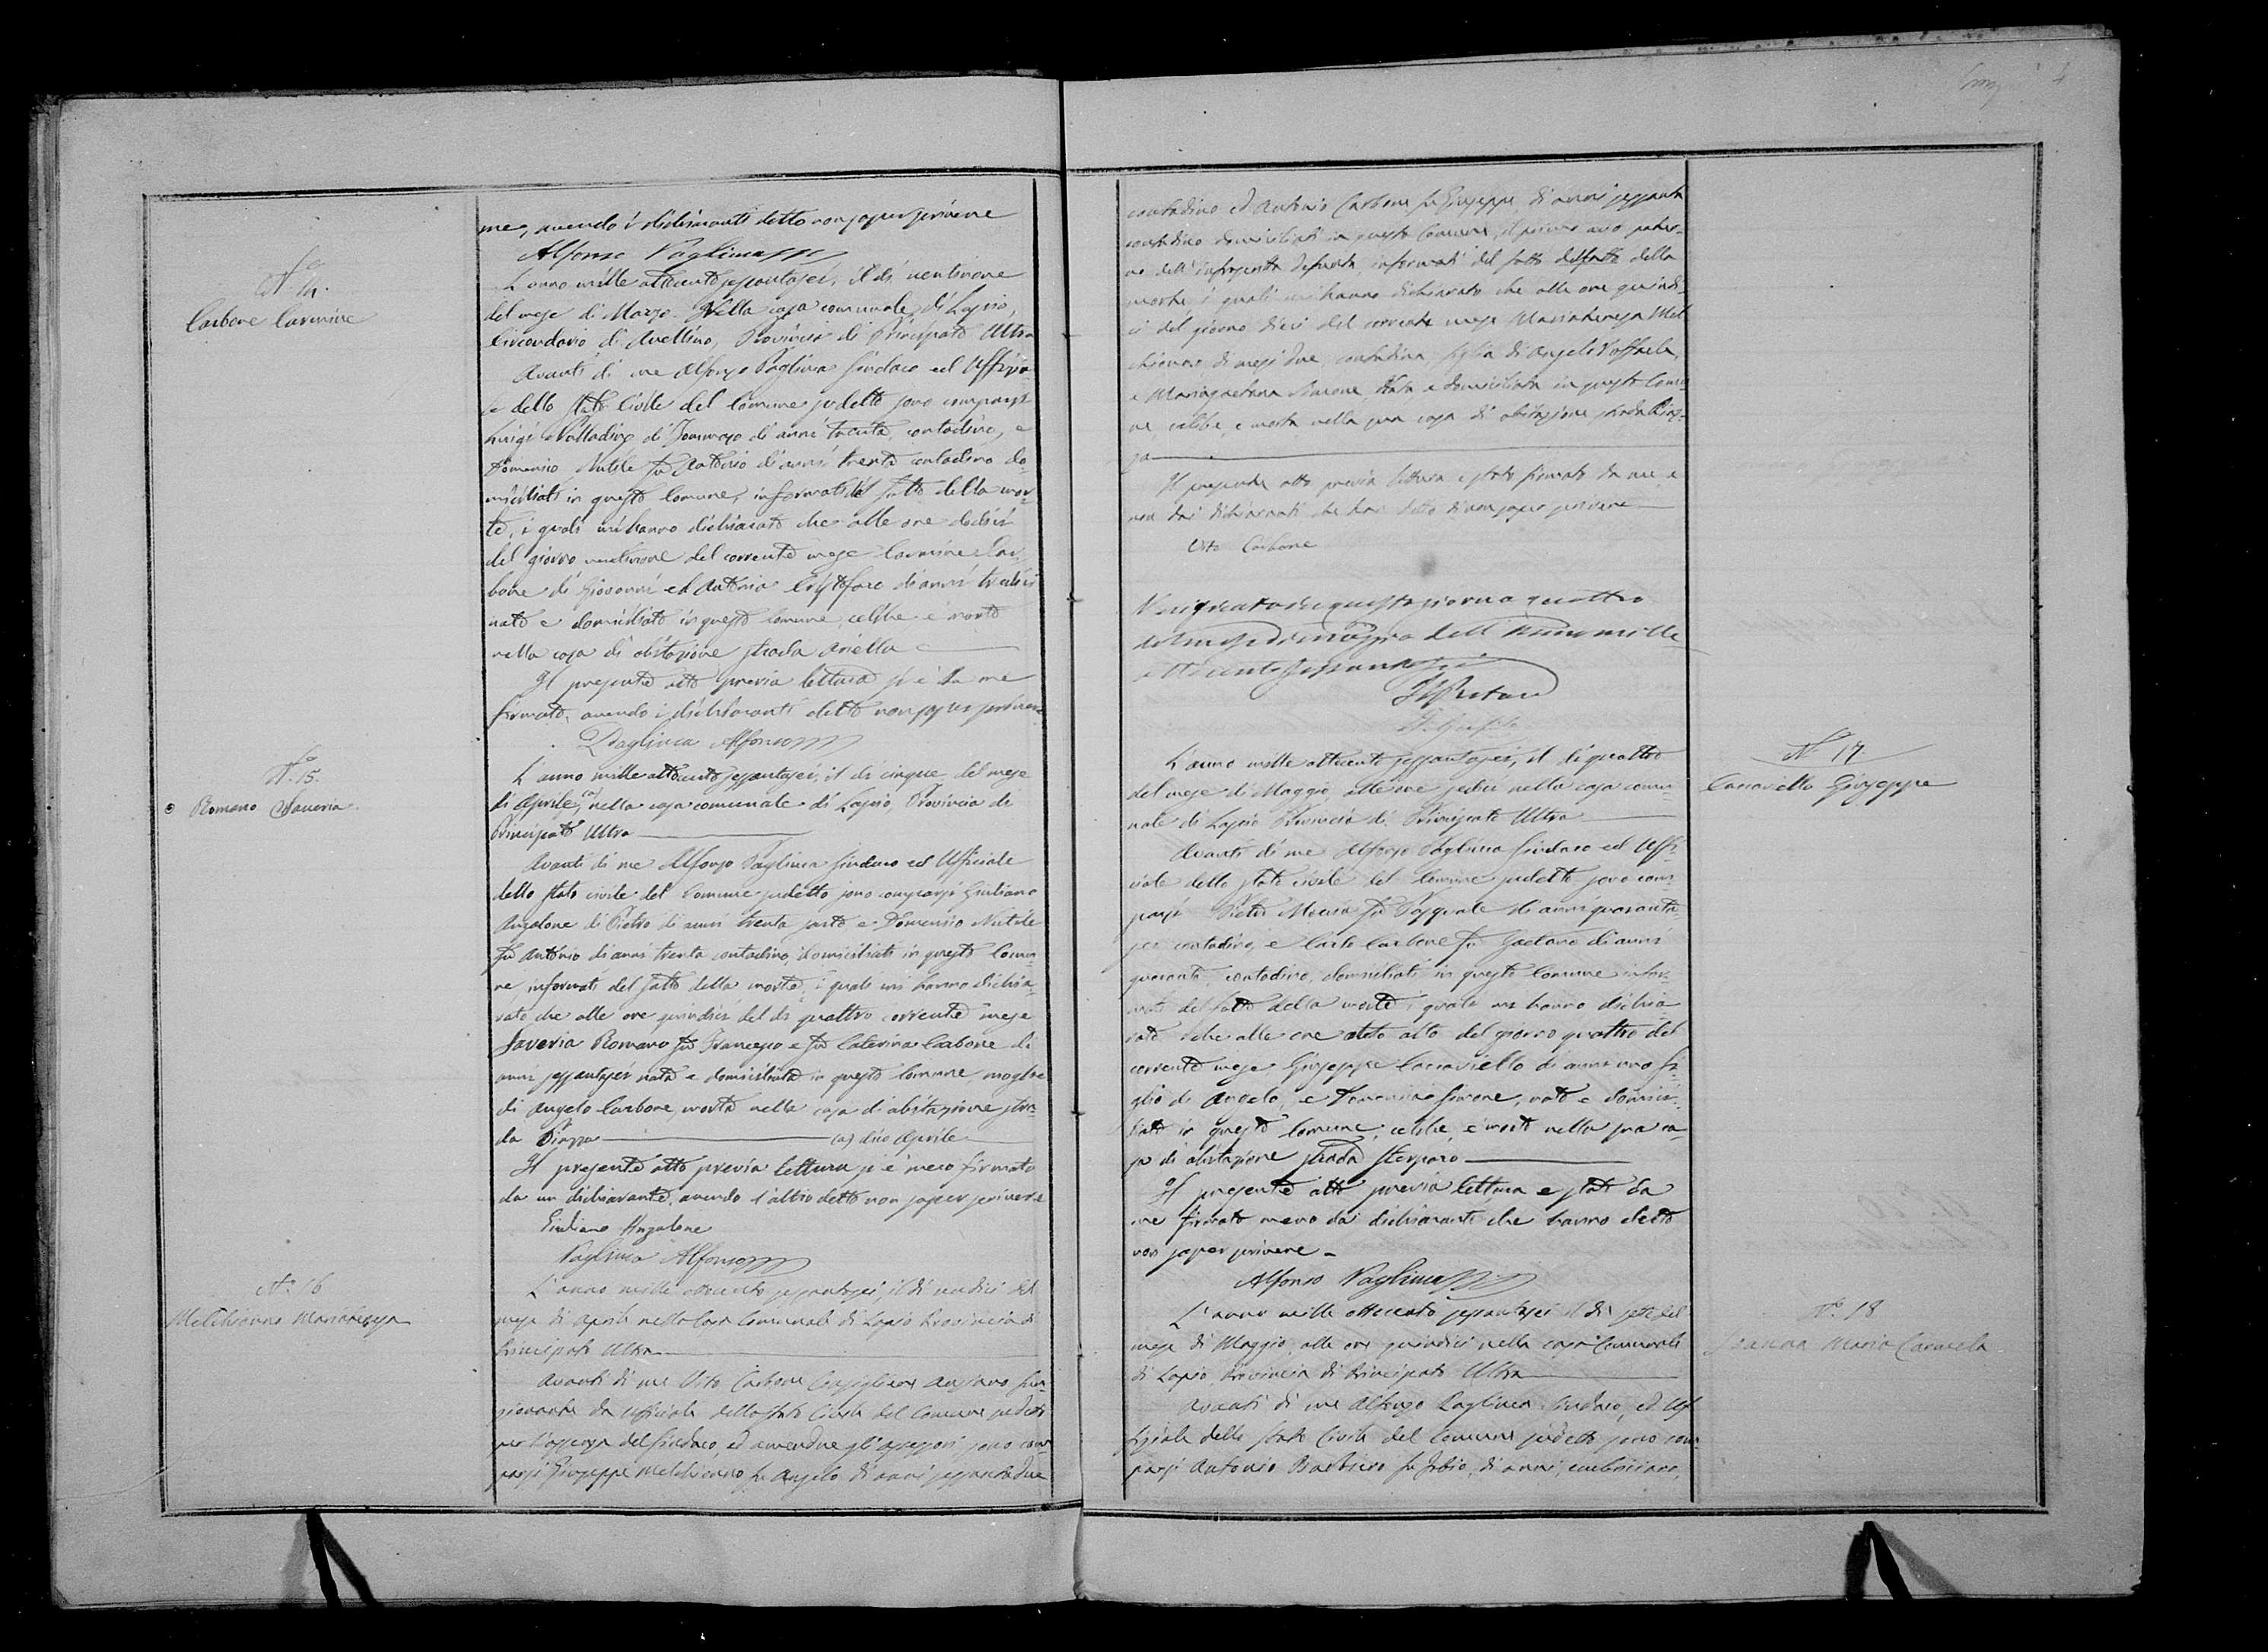 me, avendo i dichiaranti detto non saper scrivere
Alfonso Paglinca
N.° 14.
Carbone Carmine
L'anno mille ottocento sessantasei, il dì ventinove
del mese di Marzo. Nella casa comunale di Lapio,
Circondario di Avellino, Provincia di Principato Ultra
Avanti di me Alfonso Paglinca Sindaco ed Uffizia-
le dello Stato Civile del Comune sudetto sono comparsi
Luigi Palladino di Tommaso di anni trenta, contadino, e
Domenico Nutile fu Antonio di anni trenta contadino do-
miciliati in questo Comune, informati del fatto della mor-
te, i quali mi hanno dichiarato che alle ore dodici
del giorno ventinove del corrente mese Carmine Car-
bone di Giovanni ed Antonia Cristofaro di anni tredici
nato e domiciliato in questo Comune, celibe è morto
nella casa di abitazione strada Ariella
Il presente atto previa lettura si è da me
firmato, avendo i dichiaranti detto non saper scrivere
Paglinca Alfonso
N.° 15.
Romano Saveria
L'anno mille ottocento sessantasei, il dì cinque del mese
di Aprile, (a) nella casa comunale di Lapio, Provincia di
Principato Ultra
Avanti di me Alfonso Paglinca Sindaco ed Ufficiale
dello stato civile del Comune sudetto sono comparsi Giuliano
Anzalone di Pietro di anni trenta sarto e Domenico Nutile
fu Antonio di anni trenta contadino, domiciliati in questo Comu-
ne, informati del fatto della morte, i quali mi hanno dichia-
rato che alle ore quindici del dì quattro corrente mese
Saveria Romano fu Francesco e fu Caterina Carbone di
anni sessantasei nata e domiciliata in questo Comune moglie
di Angelo Carbone, morta nella casa di abitazione stra-
da Piazza (a) dico Aprile
Il presente atto previa lettura si è meco firmato
da un dichiarante, avendo l'altro detto non saper scrivere
Giuliano Anzalone
Paglinca Alfonso
N.° 16
Melchionno Mariateresa
L'anno mille ottocento sessantasei, il dì undici del
mese di Aprile nella Casa Comunale di Lapio Provincia di
Principato Ultra
Avanti di me Vito Carbone Consigliere Anziano fun-
zionante da Ufficiale dello Stato Civile del Comune sudetto
per l'assenza del Sindaco, ed amendue gli assessori sono com-
parsi Giuseppe Melchionno fu Angelo di anni sessantadue
contadino ed Antonio Carbone fu Giuseppe di anni sessanta
contadino domiciliati in questo Comune, il primo avo pater-
no dell' infrascritta defunta, informati del fatto della
morte, i quali mi hanno dichiarato che alle ore quindi-
ci del giorno dieci del corrente mese Mariateresa Mel-
chionno di mesi due, contadina, figlia di Angelo Raffaele,
e Mariagaetana Simone, nata e domiciliata in questo Comu-
ne celibe, è morta nella sua casa di abitazione strada Piaz-
za
Il presente atto previa lettura è stato firmato da me, e
non dai dichiaranti che han detto di non saper scrivere
Vito Carbone
Verificato in questo giorno quattro
del mese di Maggio dell' Anno mille
ottocento sessantasei
Il Pretore
N.° 17
Caccaviello Giuseppe
L'anno mille ottocento sessantasei, il dì quattro
del mese di Maggio alle ore sedici nella casa comu-
nale di Lapio Provincia di Principato Ultra
Avanti di me Alfonso Paglinca Sindaco ed Uffi-
ciale dello stato civile del Comune sudetto sono com-
parsi Pietro Moccia fu Pasquale di anni quaranta-
sei contadino, e Carlo Carbone fu Gaetano di anni
quaranta, contadino, domiciliati in questo Comune infor-
mati del fatto della morte, i quali mi hanno dichia-
rato che alle ore otto del giorno quattro del
corrente mese Giuseppe Caccaviello di anni uno fi-
glio di Angelo, e Domenica Simone, nato e domici-
liato in questo Comune, celibe, è morto nella sua ca-
sa di abitazione strada Sterparo
Il presente atto previa lettura è stato da
me firmato meno dai dichiaranti che hanno detto
non saper scrivere
Alfonso Paglinca
N.° 18
Maria Carmela
L'anno mille ottocento sessantasei il dì sette del
mese di Maggio, alle ore quindici nella casa Comunale
di Lapio, Provincia di Principato Ultra
Avanti di me Alfonso Paglinca Sindaco, ed Uf-
fiziale dello stato Civile del Comune sudetto sono com-
parsi Antonio Barbiero fu di anni